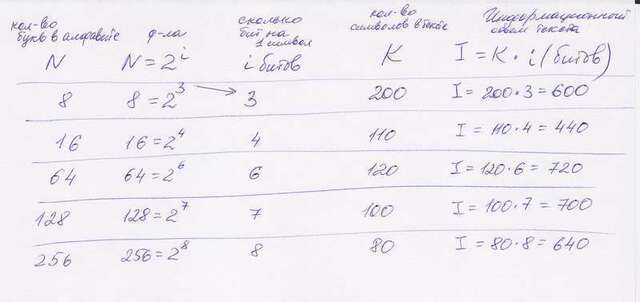 кол-во букв в алфавите ф-ла сколько бит на 1 символ кол-во символов в тексте Информационный объем текста
N N = 2^i i битов K I = K · i (битов)
8 8 = 2^3 3 200 I = 200 · 3 = 600
16 16 = 2^4 4 110 I = 110 · 4 = 440
64 64 = 2^6 6 120 I = 120 · 6 = 720
128 128 = 2^7 7 100 I = 100 · 7 = 700
256 256 = 2^8 8 80 I = 80 · 8 = 640